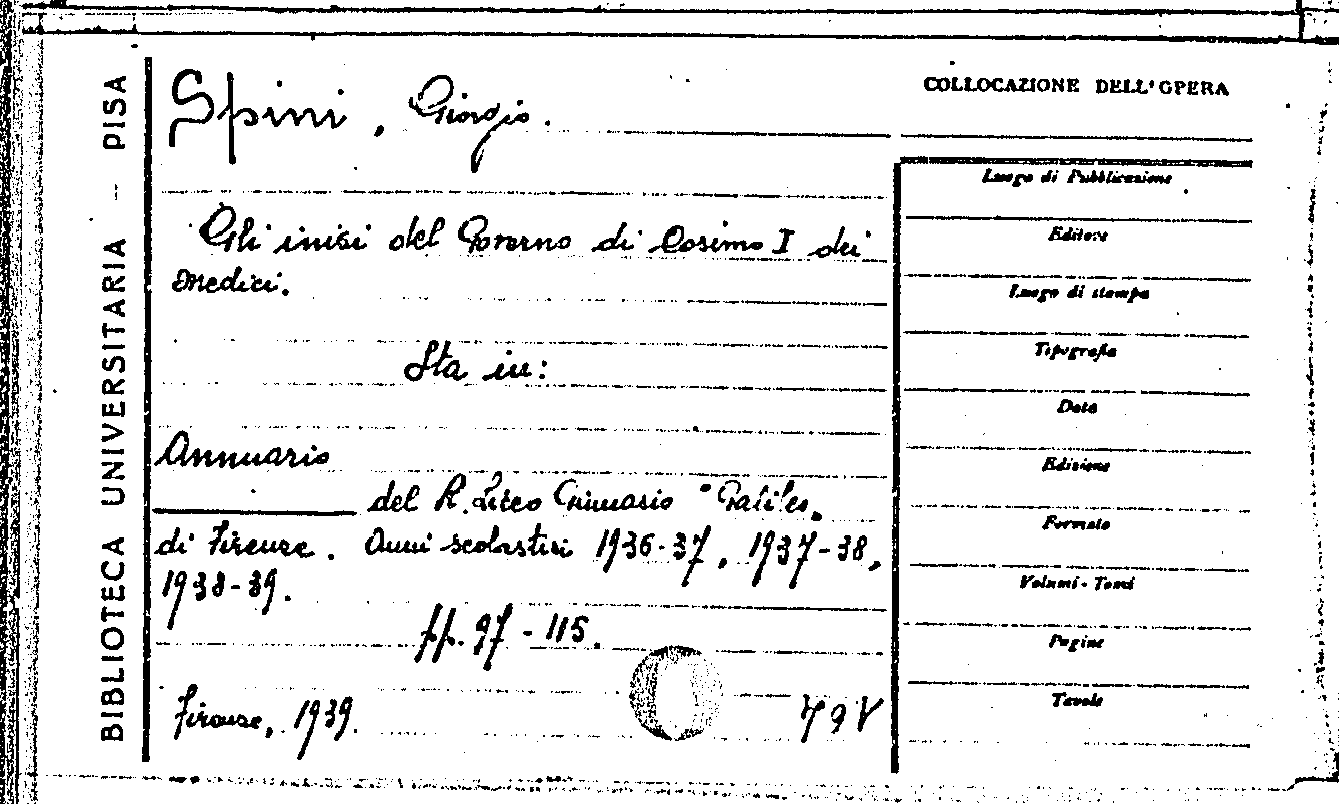 BIBLIOTECA UNIVERSITARIA - PISA
Spini, Giorgio.
Gli inizi del Governo di Cosimo I dei
Medici.
Sta in:
Annuario
del R. Liceo Ginnasio "Galileo"
di Firenze. Anni scolastici 1936-37, 1937-38,
1938-39.
pp. 97-115.
Firenze, 1939.
COLLOCAZIONE DELL'OPERA
Luogo di Pubblicazione
Editore
Luogo di stampa
Tipografia
Data
Edizione
Formato
Volumi - Tomi
Pagine
Tavole